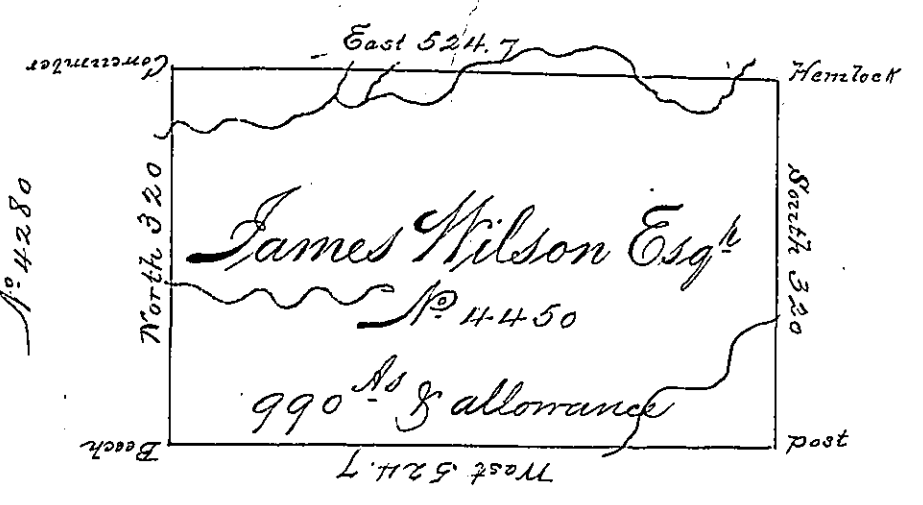 East 524.7
Corcumber
Hemlock
No 4280
North 320
South 320
James Wilson Esqr
No 4450
990 As & allowance
Beech
post
West 524.7